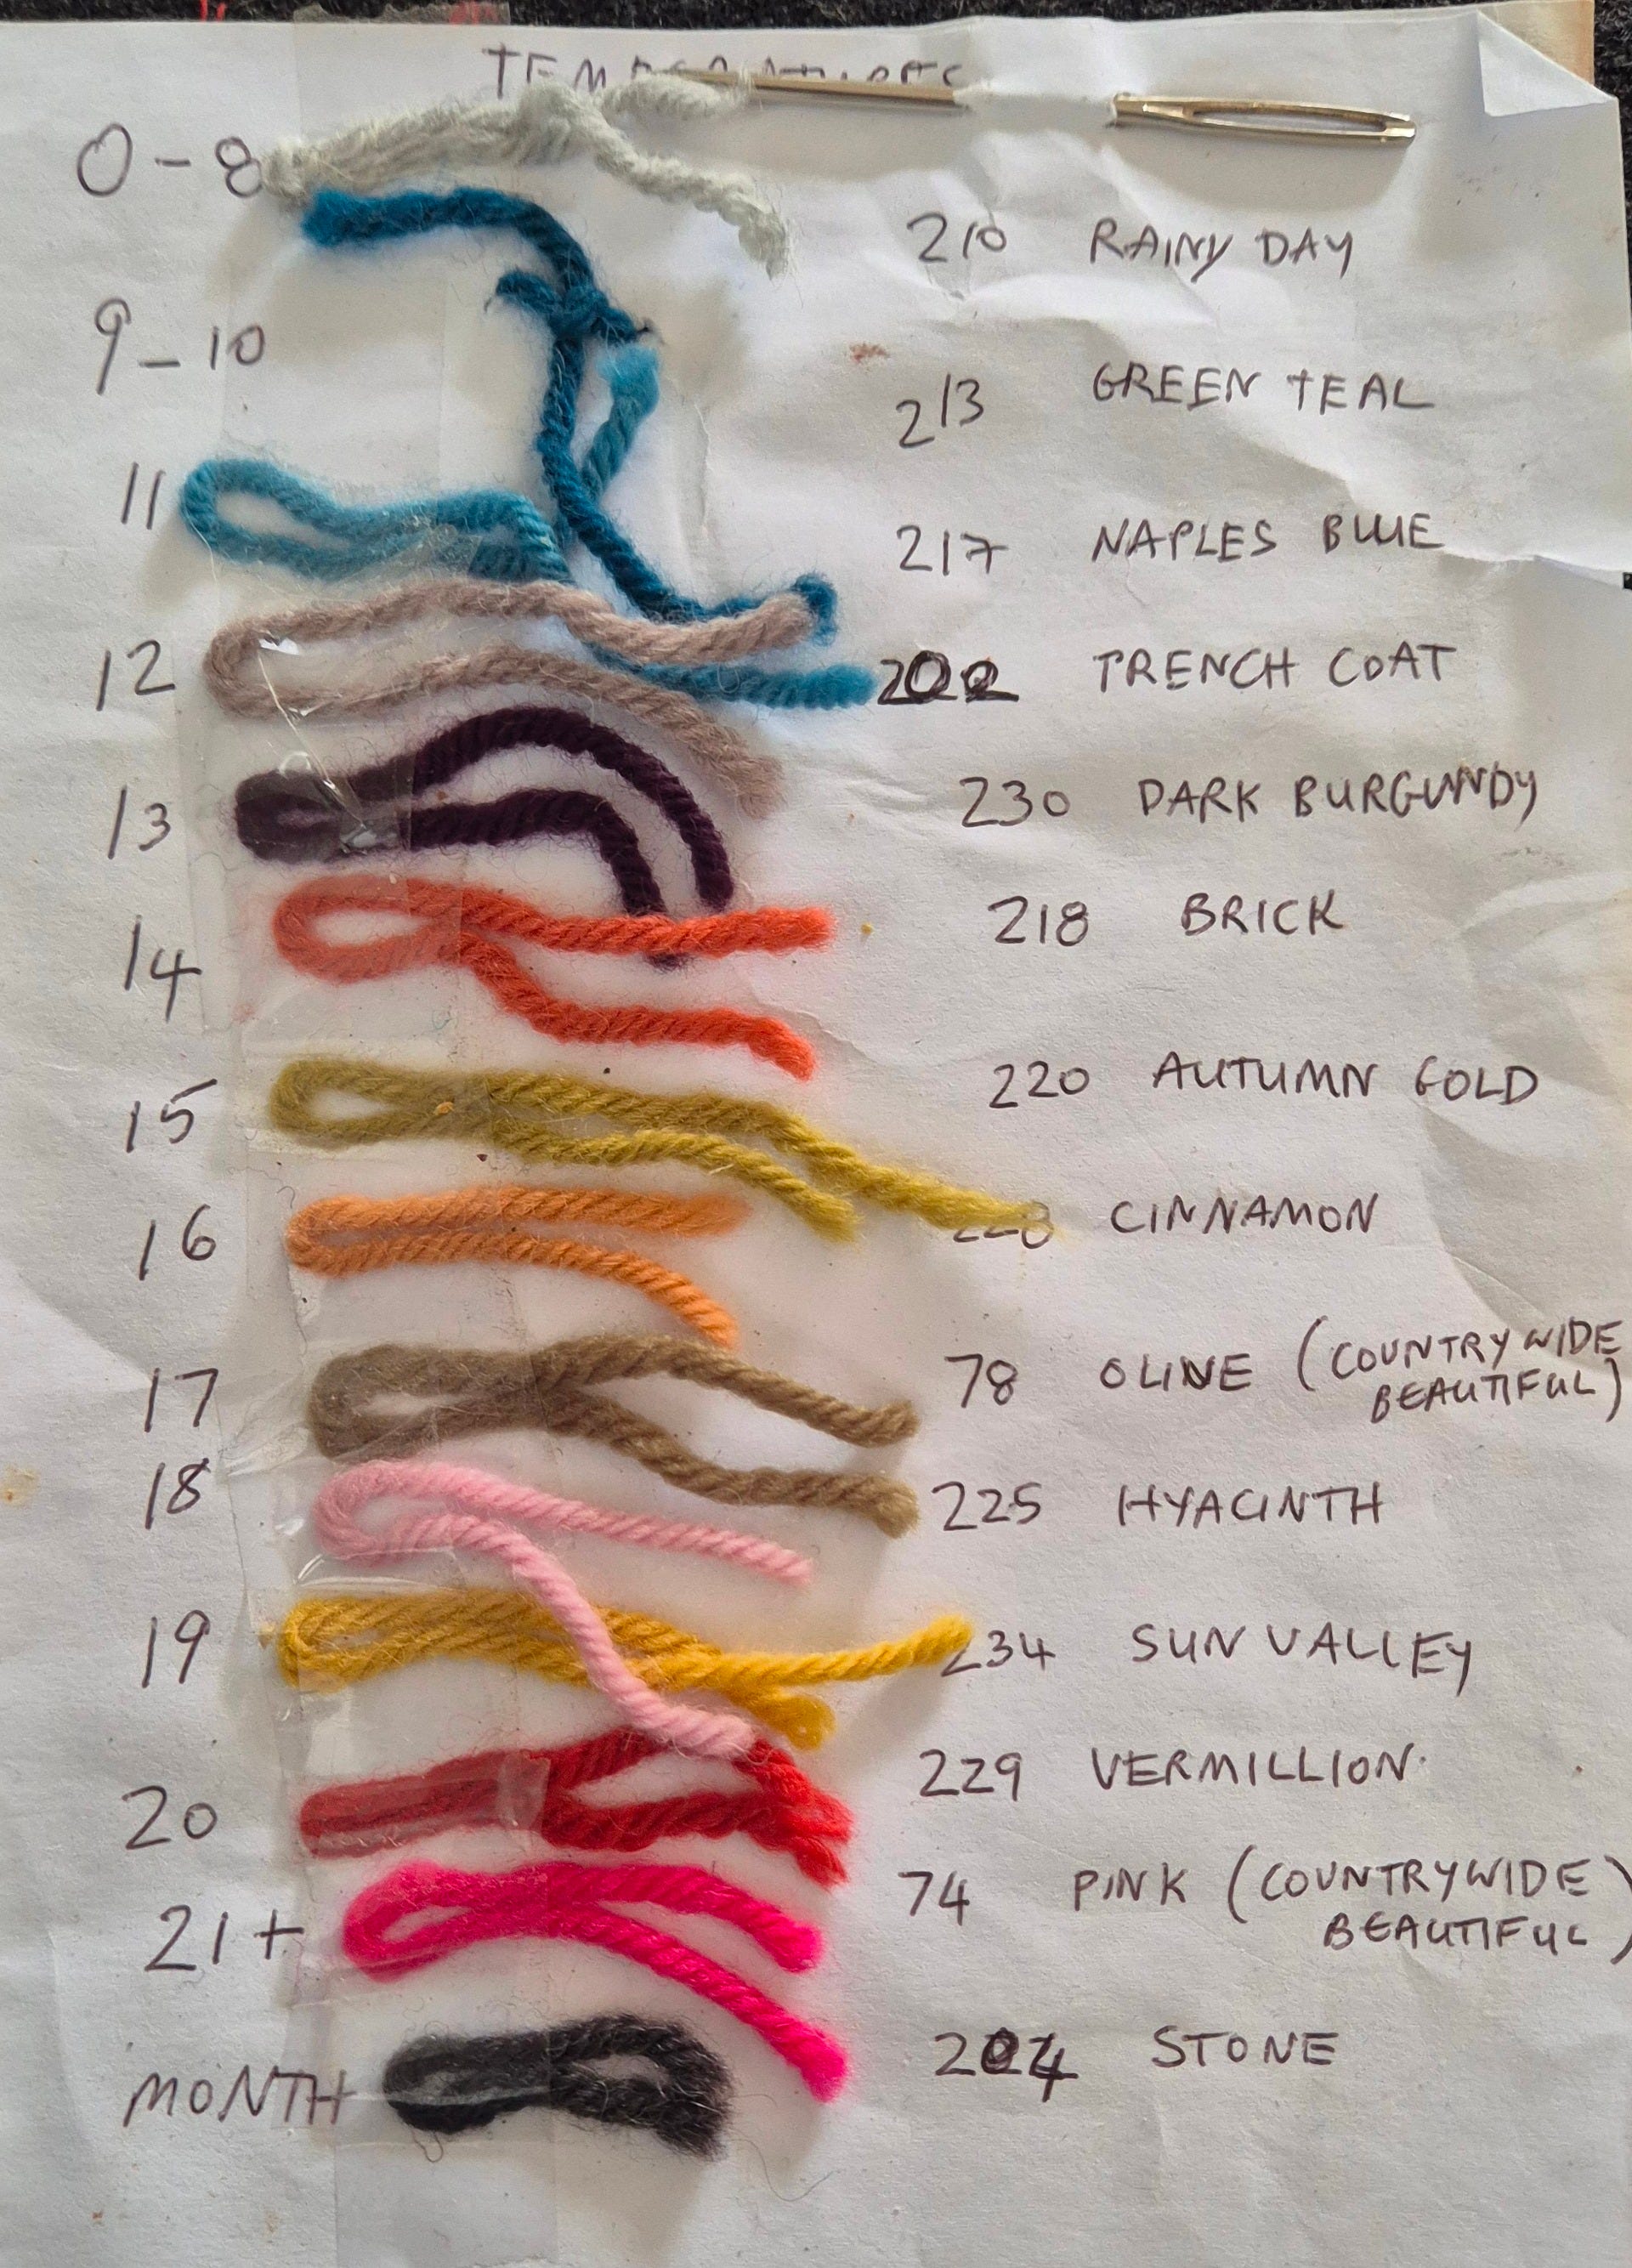 TEMPERATURES
0-8 210 RAINY DAY
9-10 213 GREEN TEAL
11 217 NAPLES BLUE
12 202 TRENCH COAT
13 230 DARK BURGUNDY
14 218 BRICK
15 220 AUTUMN GOLD
16 228 CINNAMON
17 78 OLIVE (COUNTRYWIDE
BEAUTIFUL)
18 225 HYACINTH
19 234 SUN VALLEY
20 229 VERMILLION
21+ 74 PINK (COUNTRYWIDE
BEAUTIFUL)
MONTH 204 STONE